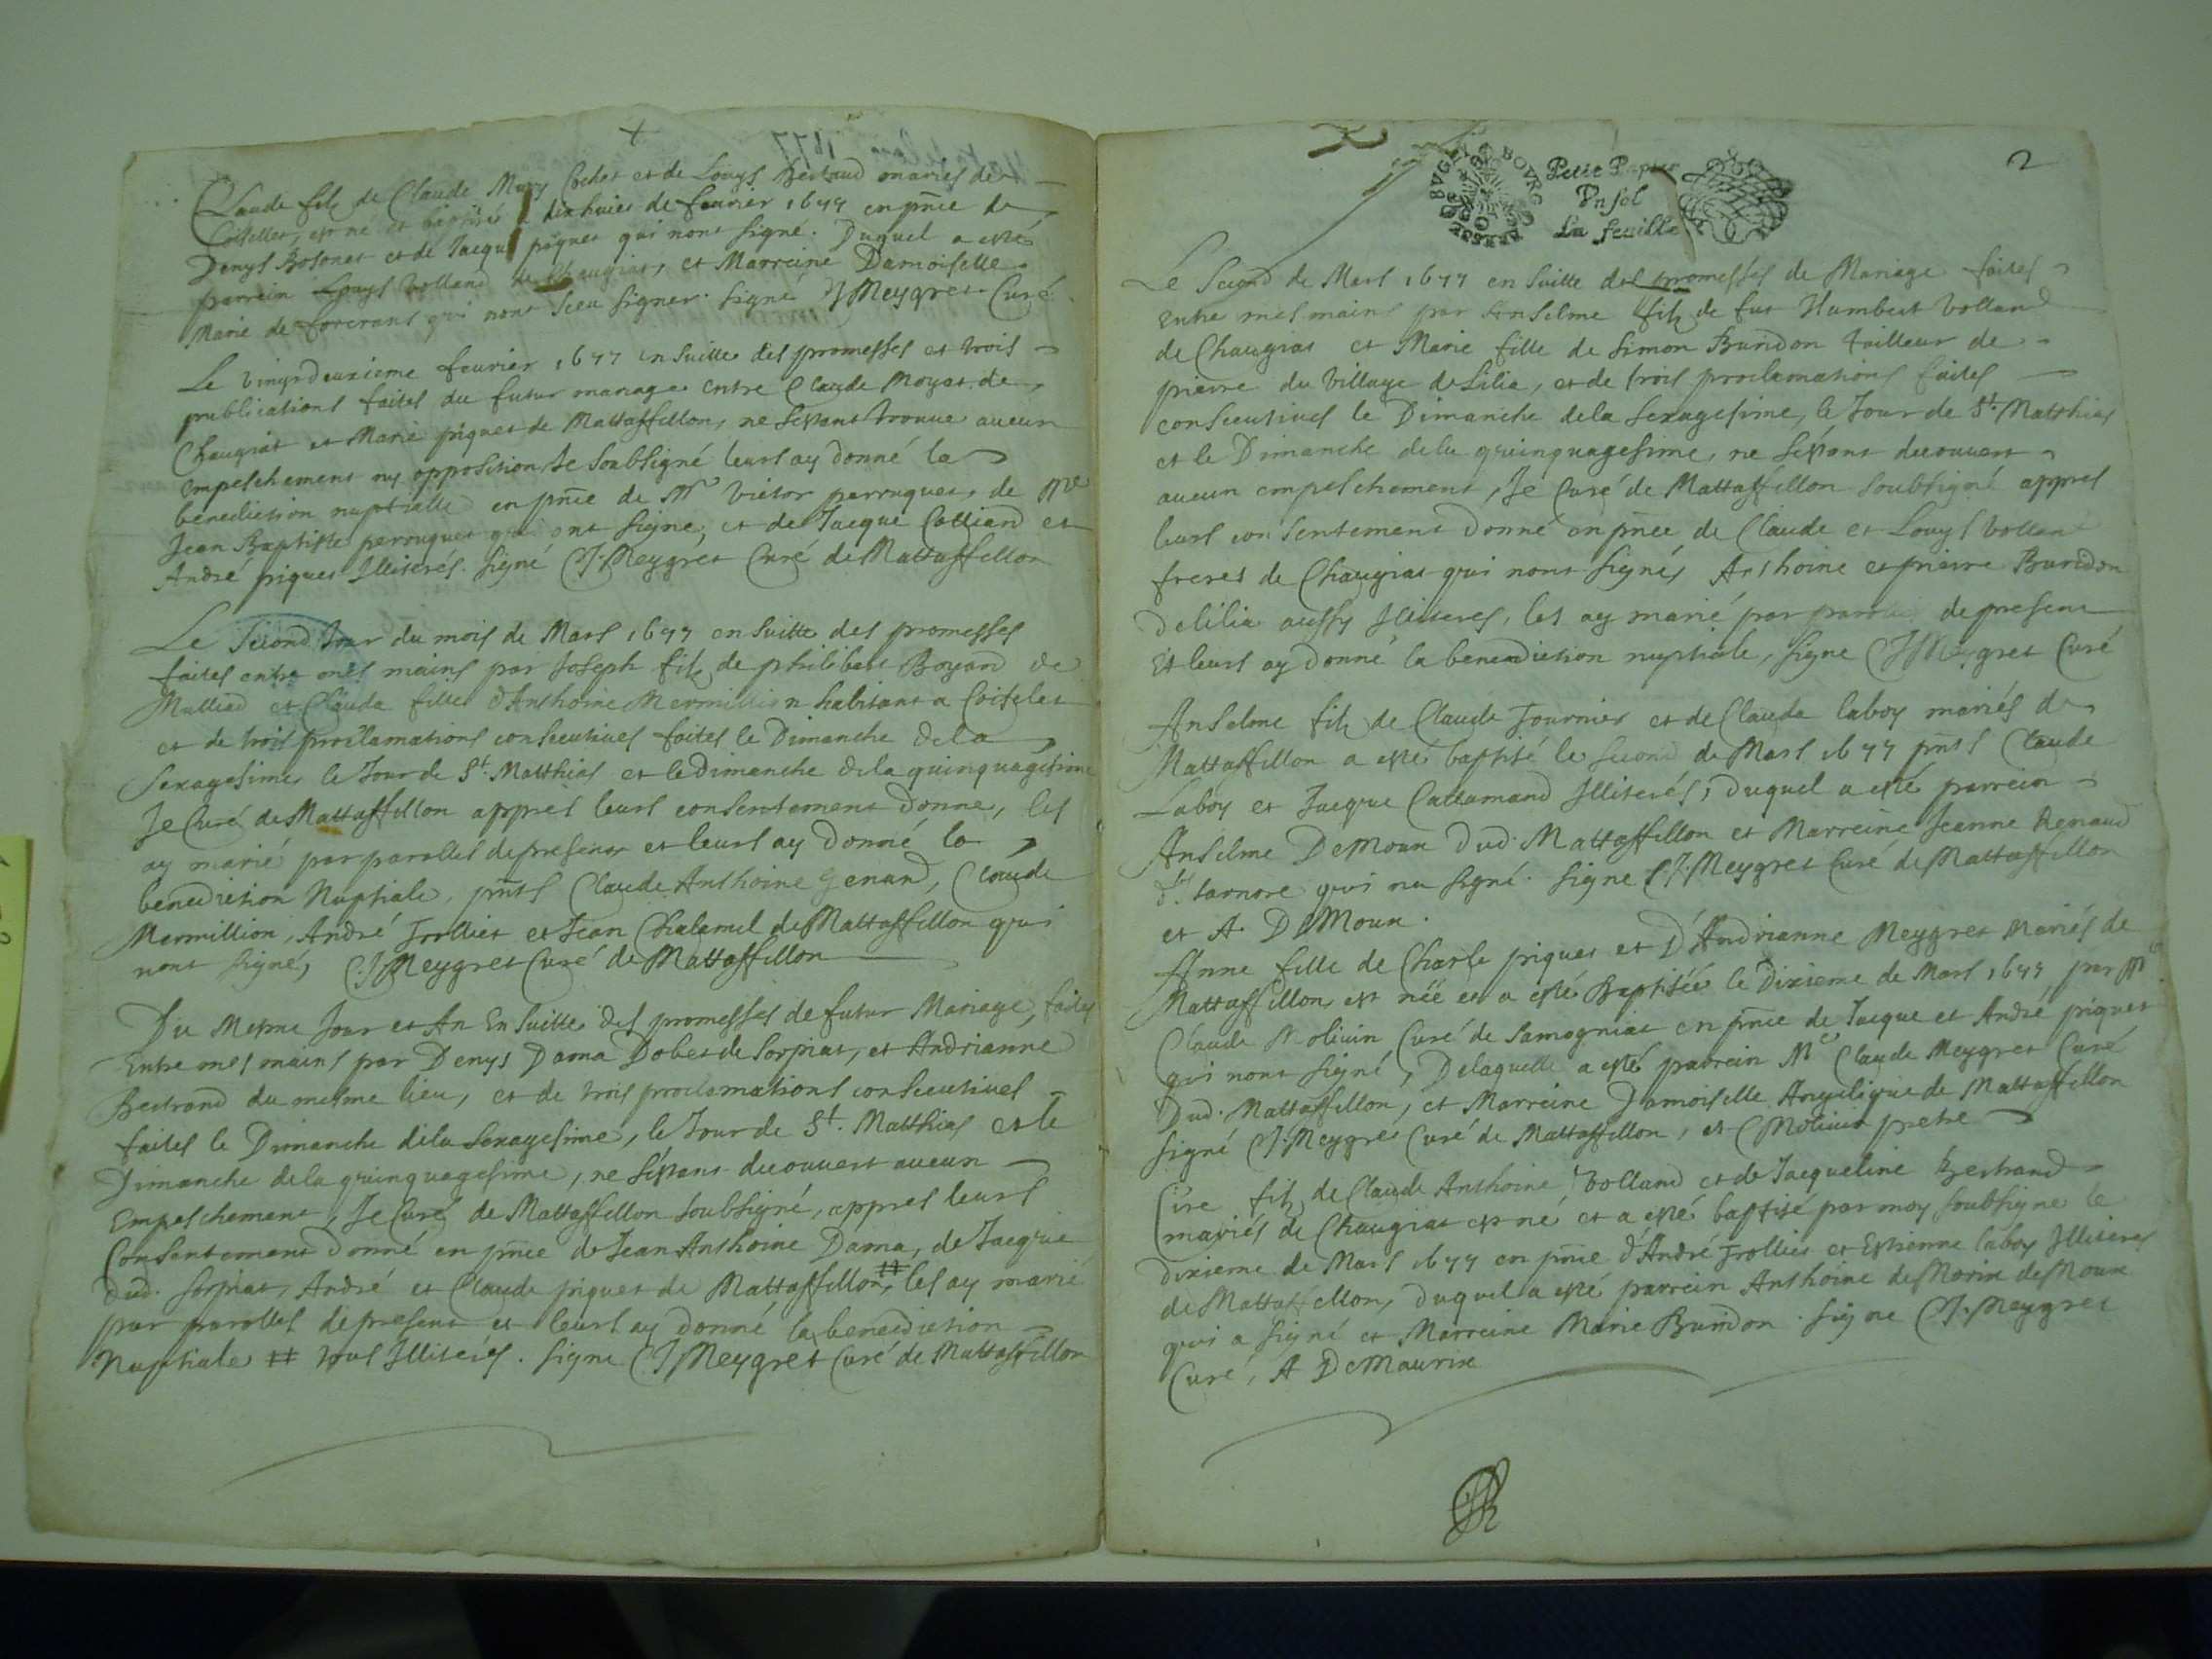 Claude filz de Claude Mury Cochet et de Louys Bertrand mariés de
Coisellet, est né et baptisé dixhuict de feurier 1677 en pñce de
Denys Bosonet et de Jacque piquet qui nont signé. Duquel a esté
parrein Louys Volland de Chaugiat, et Marreine Damoiselle
Marie de forcrans qui nont sceu signer. Signé CJMeygret Curé
Le vingtdeuxieme feurier 1677 en suitte des promesses et trois
publications faites du futur mariage entre Claude Moyat de
Chaugiat et Marie piquet de Mattaffellon, ne sestant trouue aucun
empeschement ny opposition Je soubsigné leurs ay donné la
benediction nuptialle en pñce de Mre Victor perruquet, de Mre
Jean Baptiste perruquet qui ont signe, et de Jacque Calliard et
André piquet Illiterés. Signé CJ.Meygret Curé de Mattaffellon
Le second Jour du mois de Mars 1677 en suitte des promesses
faites entre mes mains par Joseph filz de philibert Boyard de
Mulliad et Claude fille d'Anthoine Mermillion habitant a Coiselet
et de trois proclamations consecutiues faites le Dimanche dela
sexagesime, le Jour de St. Matthias et le dimanche dela quinquagesime
Je Curé de Mattaffellon appres leurs consentement donne, les
ay marié par parolles depresent et leurs ay donné la
benediction Nuptiale, pñts Claude Anthoine Genand, Claude
Mermillion, André Trollier et Jean Chalamel de Mattaffellon qui
nont signé, CJMeygret Curé de Mattaffellon
Du Mesme Jour et An En suitte des promesses de futur Mariage, faites
Entre mes mains par Denys Dama Dobet de Sorpiat, et Andrianne
Bertrand du mesme lieu, et de trois proclamations consecutiues
faites le Dimanche dela sexagesime, le Jour de St. Matthias et le
Dimanche dela quinquagesime, ne sestant decouuert aucun
Empeschement, Je Curé de Mattaffellon soubsigné, appres leurs
Consentement donné en pñce de Jean Anthoine Dama, de Jacque
dud. Sorpiat, André et Claude piquet de Mattaffellon, # les ay marié
par parolles depresent et leurs ay donné la benediction
Nuptiale # tous Illiterés. Signe CJMeygret Curé de Mattaffellon
2
BUGEY BOURG
Petit Papier
Un sol
La feuille
Le second de Mars 1677 en suitte des promesses de Mariage faites
entre mes mains par Anselme filz de fut Humbert Volland
de Chaugiat et Marie fille de Simon Burdon tailleur de
pierre du village de Lilia, et de trois proclamations faites
consecutiues le Dimanche dela sexagesime, le Jour de St. Matthias
et le Dimanche dela quinquagesime, ne sestant decouuert
aucun empeschement, Je Curé de Mattaffellon soubsigné appres
leurs consentement donné en pñce de Claude et Louys Volland
freres de Chaugiat qui nont signés Anthoine et pierre Burdon
delilia aussy Illiterés, les ay marié par parolles depresent
Et leurs ay donné la benediction nuptiale, signe CJMeygret Curé
Anselme filz de Claude Fournier et de Claude Laboy mariés de
Mattaffellon a esté baptisé le second de Mars 1677 pñts Claude
Laboy et Jacque Callamand Illiterés, duquel a esté parrein
Anselme DeMoux dud. Mattaffellon et Marreine Jeanne Renaud
d'. samore qui na signé. signe CJ.Meygret Curé de Mattaffellon
et A. DeMoux.
Anne fille de Charle piquet et d'Andrianne Meygret mariés de
Mattaffellon est néé et a esté Baptiséé le Dixieme de Mars 1677, par Mre
Claude Moliuin Curé de Samogniat en pñce de Jacque et André piquet
qui nont signé, Delaquelle a esté parrein Mre Claude Meygret Curé
Dud. Mattaffellon, et Marreine Damoiselle Angelique de Mattaffellon
signé CJ.Meygret Curé de Mattaffellon, et CMoliuin pretre
Cire filz de Claude Anthoine Volland et de Jacqueline Bertrand
mariés de Chaugiat est né et a esté baptisé par moy soubsigne le
dixieme de Mars 1677 en pñce d'André Trollier et Estienne Laboy Illiterés
de Mattaffellon, duquel a esté parrein Anthoine de Morix de Moux
qui a signé et Marreine Marie Burdon. signe CJ.Meygret
Curé, A DeMaurix